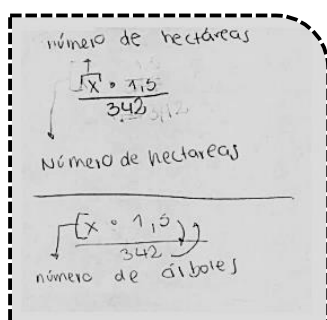 número de hectáreas
x • 1,5
342
Número de hectareas
(x • 1,5)
342
número de árboles